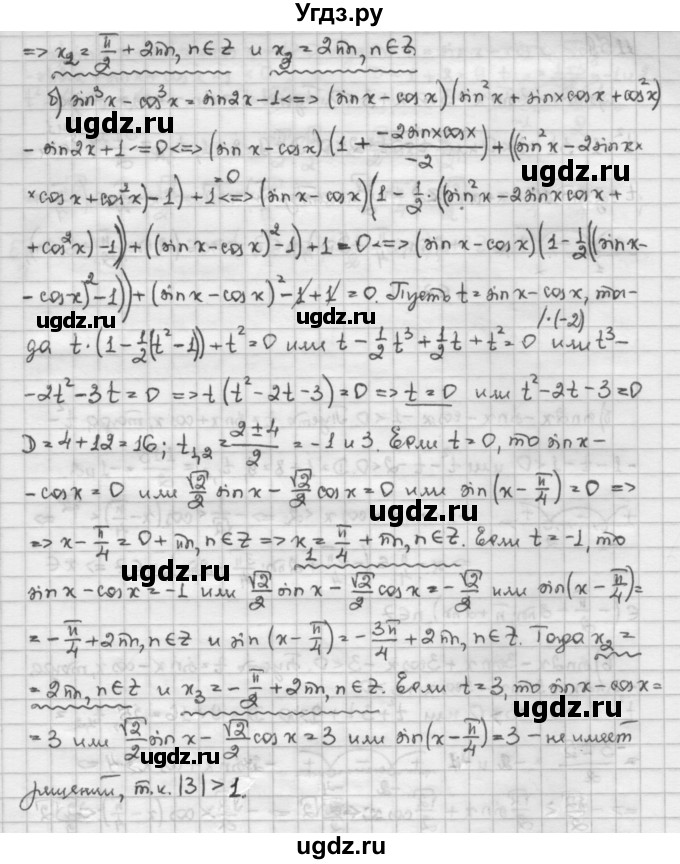 Угдз.ру
=> x₂ = π/2 + 2πn, n∈Z и x₃ = 2πn, n∈Z
б) sin³x - cos³x = sin2x - 1 <=> (sin x - cos x)(sin²x + sinxcosx + cos²x)
- sin2x + 1 = 0 <=> (sin x - cos x)(1 + -2sinxcosx/-2) + ((sin²x - 2sinx×
×cosx + cos²x) - 1) + 1 = 0 <=> (sin x - cosx)(1 - 1/2·((sin²x - 2sinxcosx +
+ cos²x) - 1)) + ((sin x - cosx)² - 1) + 1 = 0 <=> (sin x - cosx)(1 - 1/2((sinx -
- cosx)² - 1)) + (sinx - cosx)² - 1 + 1 = 0. Пусть t = sinx - cosx, то-
гда t·(1 - 1/2(t² - 1)) + t² = 0 или t - 1/2 t³ + 1/2 t + t² = 0 /·(-2) или t³ -
- 2t² - 3t = 0 => t(t² - 2t - 3) = 0 => t = 0 или t² - 2t - 3 = 0
D = 4 + 12 = 16; t₁,₂ = 2±4/2 = -1 и 3. Если t = 0, то sinx -
- cosx = 0 или √2/2 sinx - √2/2 cosx = 0 или sin(x - π/4) = 0 =>
=> x - π/4 = 0 + πn, n∈Z => x₁ = π/4 + πn, n∈Z. Если t = -1, то
sinx - cosx = -1 или √2/2 sin x - √2/2 cosx = -√2/2 или sin(x - π/4) =
= -π/4 + 2πn, n∈Z и sin(x - π/4) = -3π/4 + 2πn, n∈Z. Тогда x₂ =
= 2πn, n∈Z и x₃ = -π/2 + 2πn, n∈Z. Если t = 3, то sinx - cosx =
= 3 или √2/2 sinx - √2/2 cosx = 3 или sin(x - π/4) = 3 - не имеет
решений, т.к. |3| > 1.
ugdz.ru
ugdz.ru
ugdz.ru
ugdz.ru
ugdz.ru
ugdz.ru
ugdz.ru
ugdz.ru
ugdz.ru
ugdz.ru
ugdz.ru
ugdz.ru
ugdz.ru